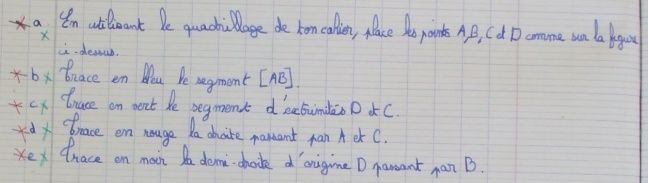 * a x En utilisant le quadrillage de ton cahier, place les points A, B, C et D comme sur la figure
ci-dessus.
* b x Trace en bleu le segment [AB].
* c x Trace en vert le segment d'extrémités D et C.
* d x Trace en rouge la droite passant par A et C.
* e x Trace en noir la demi-droite d'origine D passant par B.